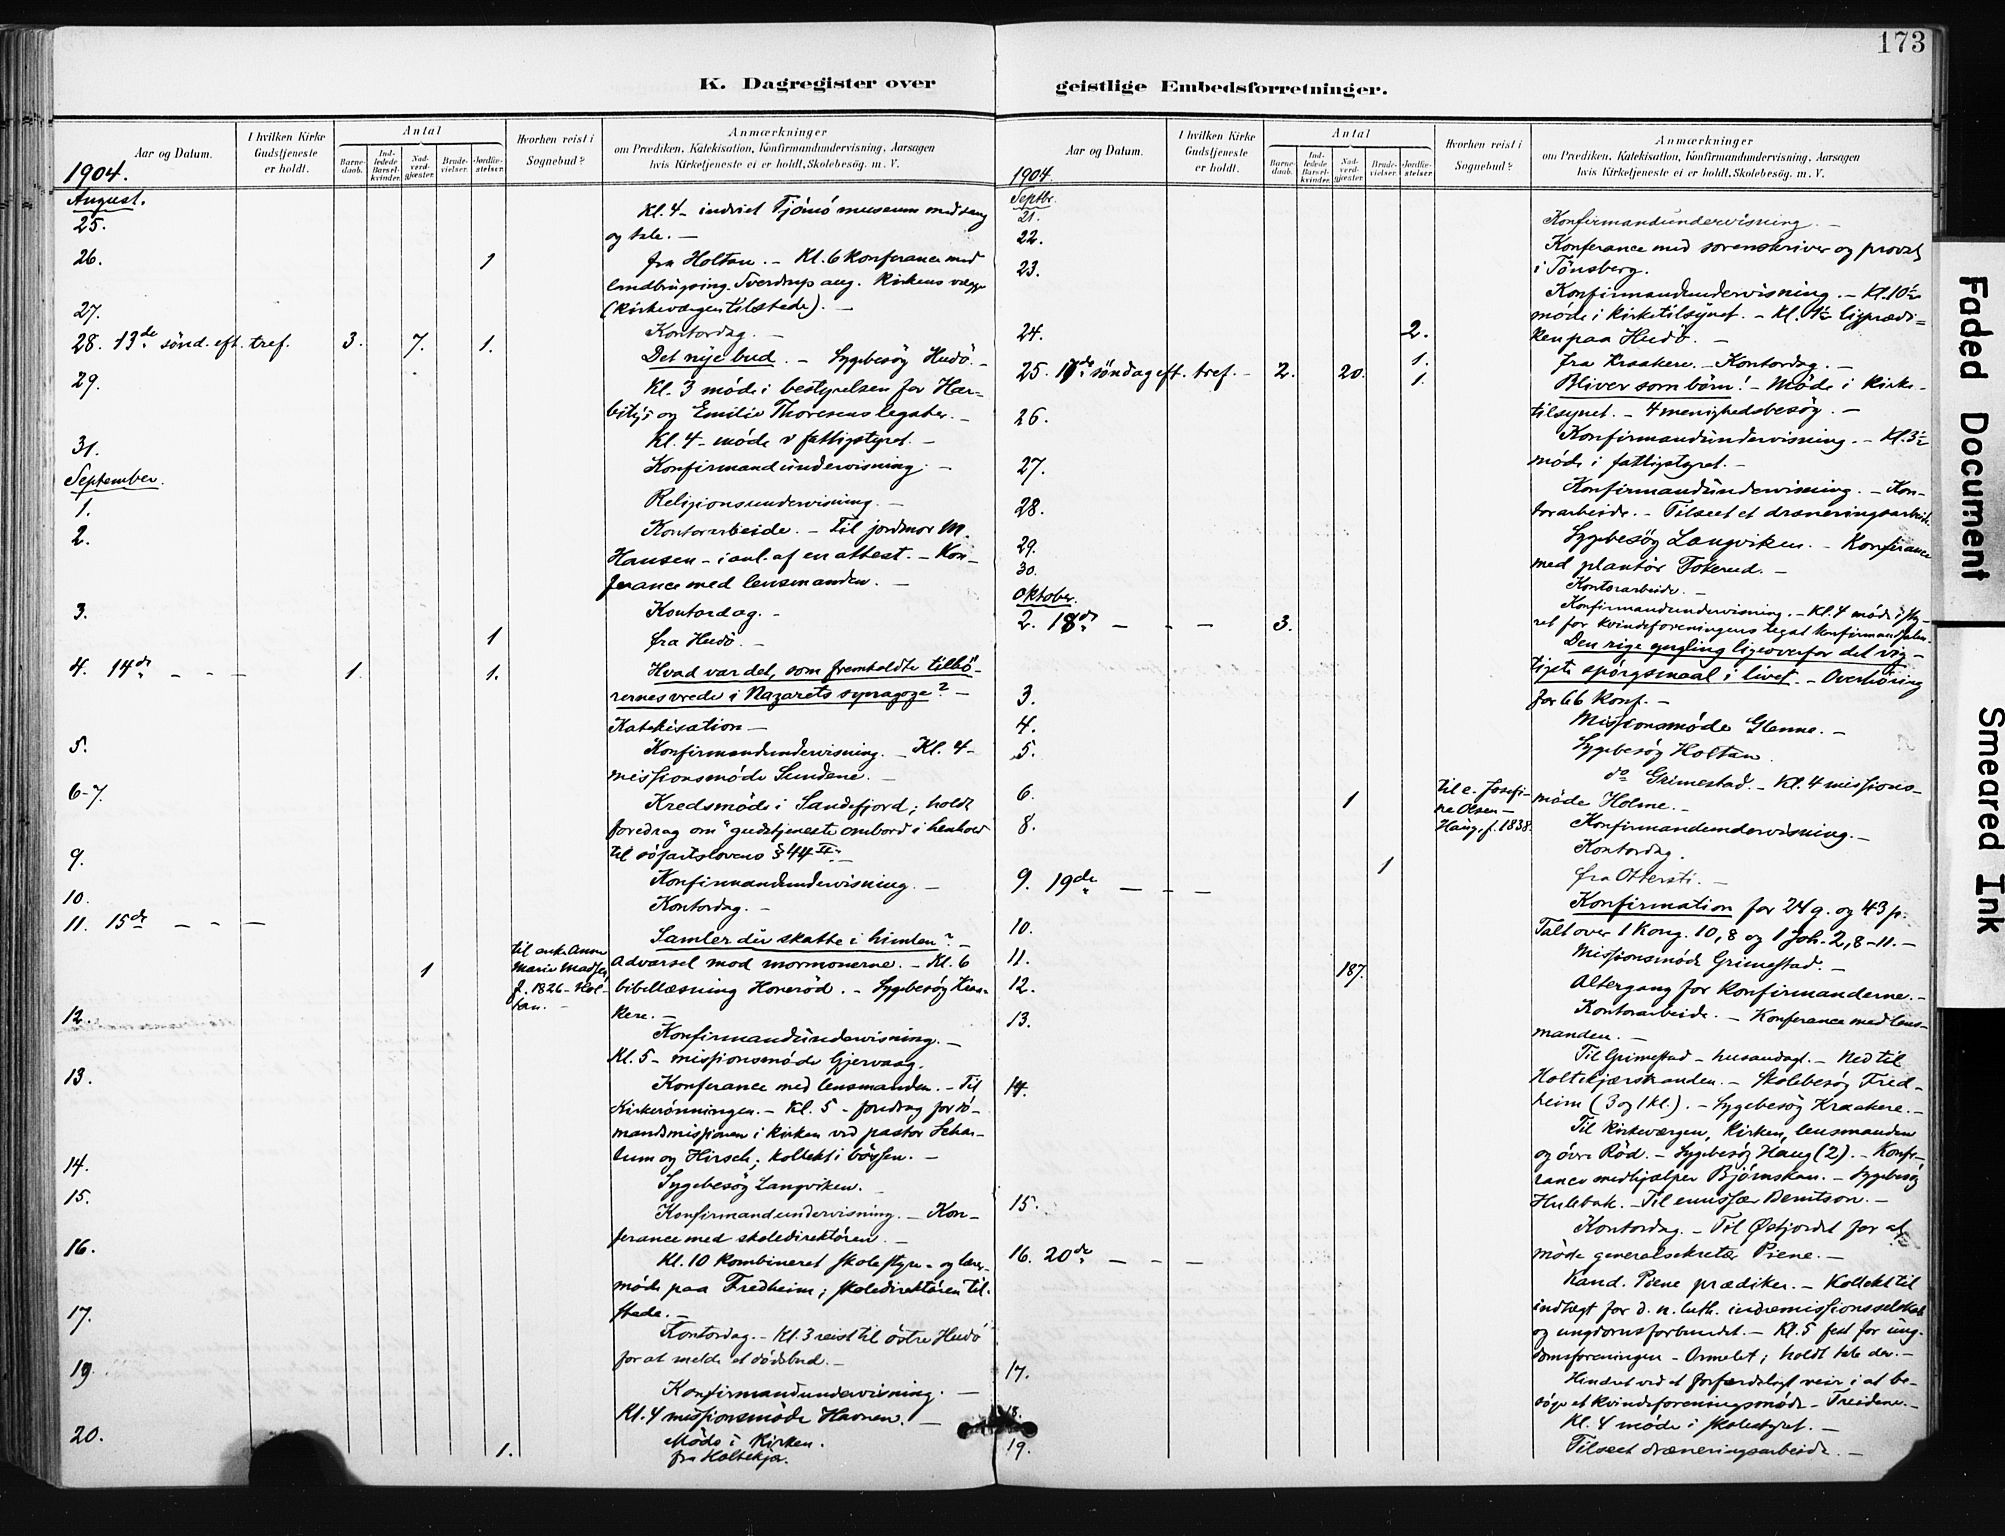 173
K. Dagregister over
geistlige Embedsforretninger.
Aar og Datum.
I hvilken Kirke Gudstjeneste er holdt.
Antal
Barnedaab.
Indledede Barselkvinder.
Nadverdgjæster.
Brudevielser.
Jordfæstelser.
Hvorhen reist i Sognebud?
Anmærkninger
om Prædiken, Katekisation, Konfirmandundervisning, Aarsagen
hvis Kirketjeneste ei er holdt, Skolebesög. m. V.
1904.
August.
25. Kl. 4 - indviet Tjömö museum med sang
og tale. -
26. 1 fra Holtan. - Kl. 6 konferance med
landbrugsing. Sverdrup ang. kirkens vægge
(kirkeværgen tilstede). -
27. Kontordag. -
28. 13de sönd. eft. tref. 3. 7. 1. Det nye bud. - Sygebesög Hudö. -
29. Kl. 3 möde i bestyrelsen for Har-
bitz's og Emilie Thoresens legater. -
Kl. 4 - möde i fattigstyret. -
31. Konfirmandundervisning. -
September.
1. Religionsundervisning. -
2. Kontorarbeide. - Til jordmor M.
Hansen - i anl. af en attest. - Kon-
ferance med lensmanden. -
3. Kontordag. -
1 fra Hudö. -
4. 14de - - - 1. 1. Hvad var det, som fremholdte tilhö-
rernes vrede i Nazarets synagoge? -
Katekisation -
5. Konfirmandundervisning. - Kl. 4 -
missionsmöde Sundene. -
6-7. Kredsmöde i Sandefjord; holdt
foredrag om "gudstjeneste ombord i henhold
til söfartslovens § 44 II". -
9. Konfirmandundervisning. -
10. Kontordag. -
11. 15de - - - Samler dir skatte i himlen? -
1 til enke Anne
Marie Madsen,
f. 1826 - Hol-
tan. -
Advarsel mod mormonerne. - Kl. 6
bibellæsning Honeröd. - Sygebesög Kraa-
kere. -
12. Konfirmandundervisning. -
Kl. 5 - missionsmöde Gjervaag.
13. Konferance med lensmanden. - Til
Kirkerönningen. - Kl. 5 - foredrag for sö-
mandsmissionen i kirken ved pastor Schar-
lum og Hirsch; kollekt i bössen. -
14. Sygebesög Langviken. -
15. Konfirmandundervisning. - Kon-
ferance med skoledirektören. -
16. Kl. 10 kombineret skolestyre- og lærer-
möde paa Fredheim; skoledirektören til-
stede. -
17. Kontordag. - Kl. 3 reist til östre Hudö
for at melde et dödsbud. -
19. Konfirmandundervisning. -
Kl. 4 missionsmöde Havnen. -
20. Möde i kirken.
1. fra Holtekjær.
Aar og Datum.
I hvilken Kirke Gudstjeneste er holdt.
Antal
Barnedaab.
Indledede Barselkvinder.
Nadverdgjæster.
Brudevielser.
Jordfæstelser.
Hvorhen reist i Sognebud?
Anmærkninger
om Prædiken, Katekisation, Konfirmandundervisning, Aarsagen
hvis Kirketjeneste ei er holdt, Skolebesög. m. V.
1904
Septbr.
21. Konfirmandundervisning. -
22. Konferance med sorenskriver og provst
i Tönsberg.
23. Konfirmandundervisning. - Kl. 10½
möde i kirketilsynet. - Kl. 4½ ligprædi-
ken paa Hudö. -
24. 2. fra Kraakere. - Kontordag. -
25. 17de söndag eft. tref. - 2. 20. 1. 1. Bliver som börn! - Möde i kirke-
tilsynet. - 4 menighedsbesög. -
26. Konfirmandundervisning. - Kl. 3½
möde i fattigstyret. -
27. Konfirmandundervisning. - Kon-
torarbeide. - Tilseet et dræneringsarbeide.
28. Sygebesög Langviken. - Konferance
med plantör Fokerud. -
29. Kontorarbeide. -
30. Konfirmandundervisning. - Kl. 4 möde i sty-
ret for kvindeforeningens legat konfirmandalen.
Oktober.
2. 18de - - - 3. Den rige yngling ligeoverfor det vig-
tigste spörgsmaal i livet. - Overhöring
for 66 konf. -
3. Missionsmöde Glenne. -
4. Sygebesög Holtan.
5. do Grimestad. - Kl. 4 missions-
möde Holme. -
6. 1 til e. Josefi-
ne Olsen -
Haug, f. 1838.
Konfirmandundervisning. -
8. Kontordag.
1 fra Ottersti. -
9. 19de - - - Konfirmation for 24 g. og 43 p.
Talt over 1 Kong. 10, 8 og 1 Joh. 2, 8-11. -
10. Missionsmöde Grimestad. -
11. 187. Altergang for konfirmanderne. -
12. Kontorarbeide. - Konferance med lens-
manden. -
13. Til Grimestad - husandagt. - Ned til
Holtekjærstranden. - Skolebesög Fred-
heim (3 og 1 kl.). - Sygebesög Kraakere. -
14. Til kirkeværgen, kirken, lensmanden
og övre Röd. - Sygebesög Haug (2). - Konfe-
rance medhjælper Bjørnskan. - Sygebesög
Hulebak. - Til emissær Berntson. -
15. Kontordag. - Til Østfjordet for at
möde generalsekretær Piene. -
16. 20de - - - Kand. Piene prædiker. - Kollekt til
indtægt for d. n. luth. indremissionsselskab
og ungdomsforbundet. - Kl. 5 fest for ung-
domsforeningen - Ormelet; holdt tale der. -
17. Hindret ved et forfærdeligt veir i at be-
söge et kvindeforeningsmöde - Treidene. -
18. Kl. 4 möde i skolestyret. -
19. Tilseet dræneringsarbeide. -
Faded Document
Smeared Ink